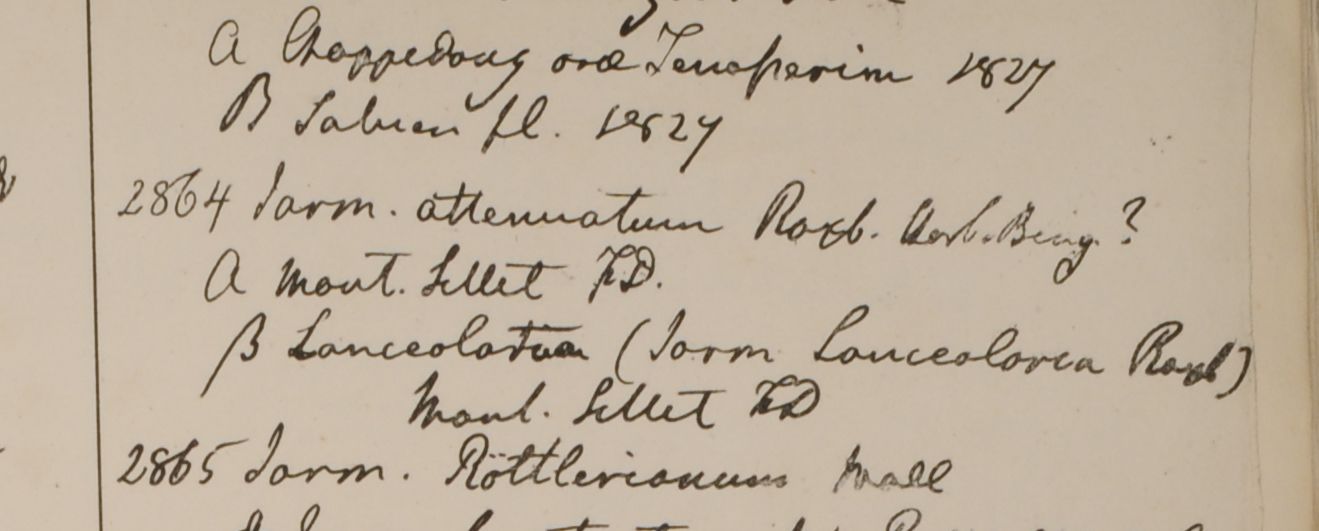 A Chappedong oræ Tenasserim 1827
B Saluen fl. 1827
2864 Jasm. attenuatum Roxb. Herb. Beng.?
A Mont. Sillet FD.
β Lanceolatum (Jasm Lanceolaria Roxb)
Mont. Sillet FD
2865 Jasm. Röttlerianum Wall